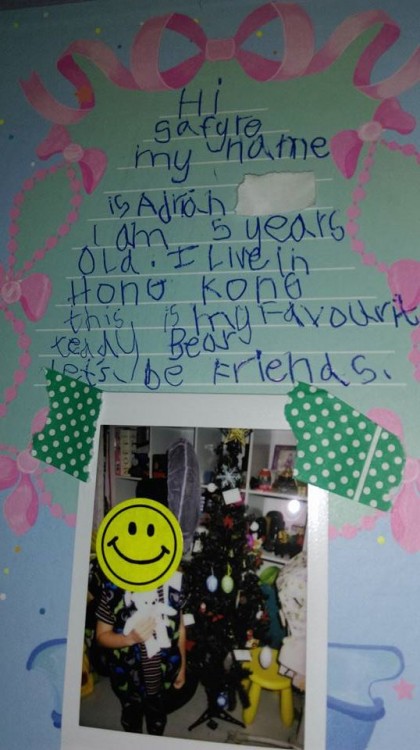 Hi
gafyro
my name
is Adrian
I am 5 years
Old. I Live in
HONG KONG
this is my Favourit
teady Bear
let's be Friends.